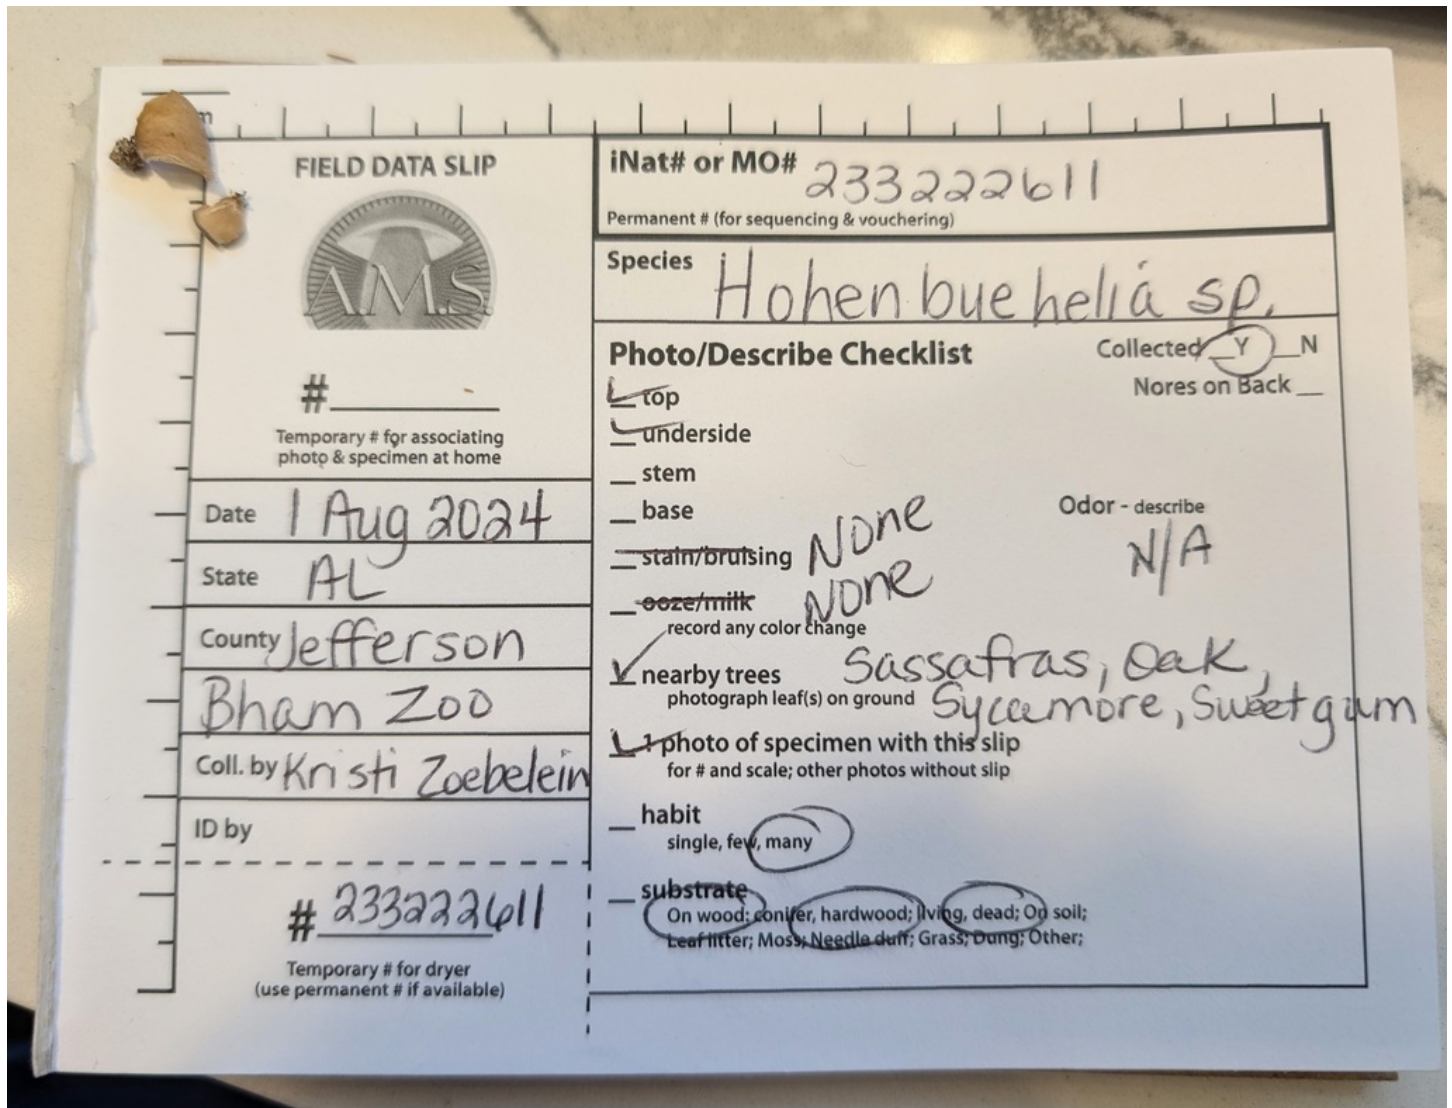 m
FIELD DATA SLIP
A.M.S.
#
Temporary # for associating
photo & specimen at home
Date 1 Aug 2024
State AL
County Jefferson
Bham Zoo
Coll. by Kristi Zoebelein
ID by
# 233222611
Temporary # for dryer
(use permanent # if available)
iNat# or MO# 233222611
Permanent # (for sequencing & vouchering)
Species Hohenbuehelia sp.
Photo/Describe Checklist
Collected __Y __N
Nores on Back __
__ top
__ underside
__ stem
__ base
Odor - describe
N/A
__ stain/bruising None
__ ooze/milk None
record any color change
__ nearby trees Sassafras, Oak,
photograph leaf(s) on ground Sycamore, Sweetgum
__ 1 photo of specimen with this slip
for # and scale; other photos without slip
__ habit
single, few, many
__ substrate
On wood: conifer, hardwood; living, dead; On soil;
Leaf litter; Moss; Needle duff; Grass; Dung; Other;